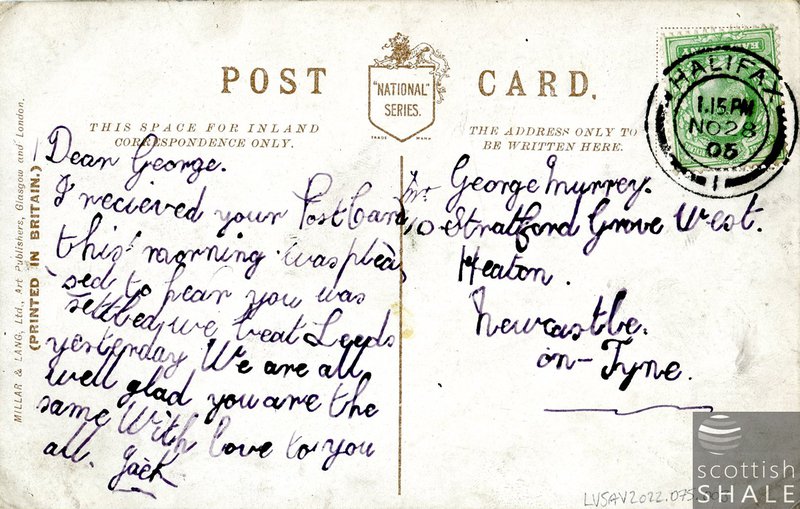 POST CARD.
"NATIONAL" SERIES.
TRADE MARK
THIS SPACE FOR INLAND
CORRESPONDENCE ONLY.
THE ADDRESS ONLY TO
BE WRITTEN HERE.
HALIFAX
1.15.PM
NO 28
05
1
HALFPENNY
MILLAR & LANG, Ltd., Art Publishers, Glasgow and London.
(PRINTED IN BRITAIN.)
Dear George.
I recieved your PostCard
this morning was plea
sed to hear you was
settled, we beat Leeds
yesterday We are all
well glad you are the
same With love to you
all. Jack
Mr George Murrey.
10 Stratford Grove West.
Heaton.
Newcastle.
on-Tyne.
LVSAV2022.075
scottish
SHALE